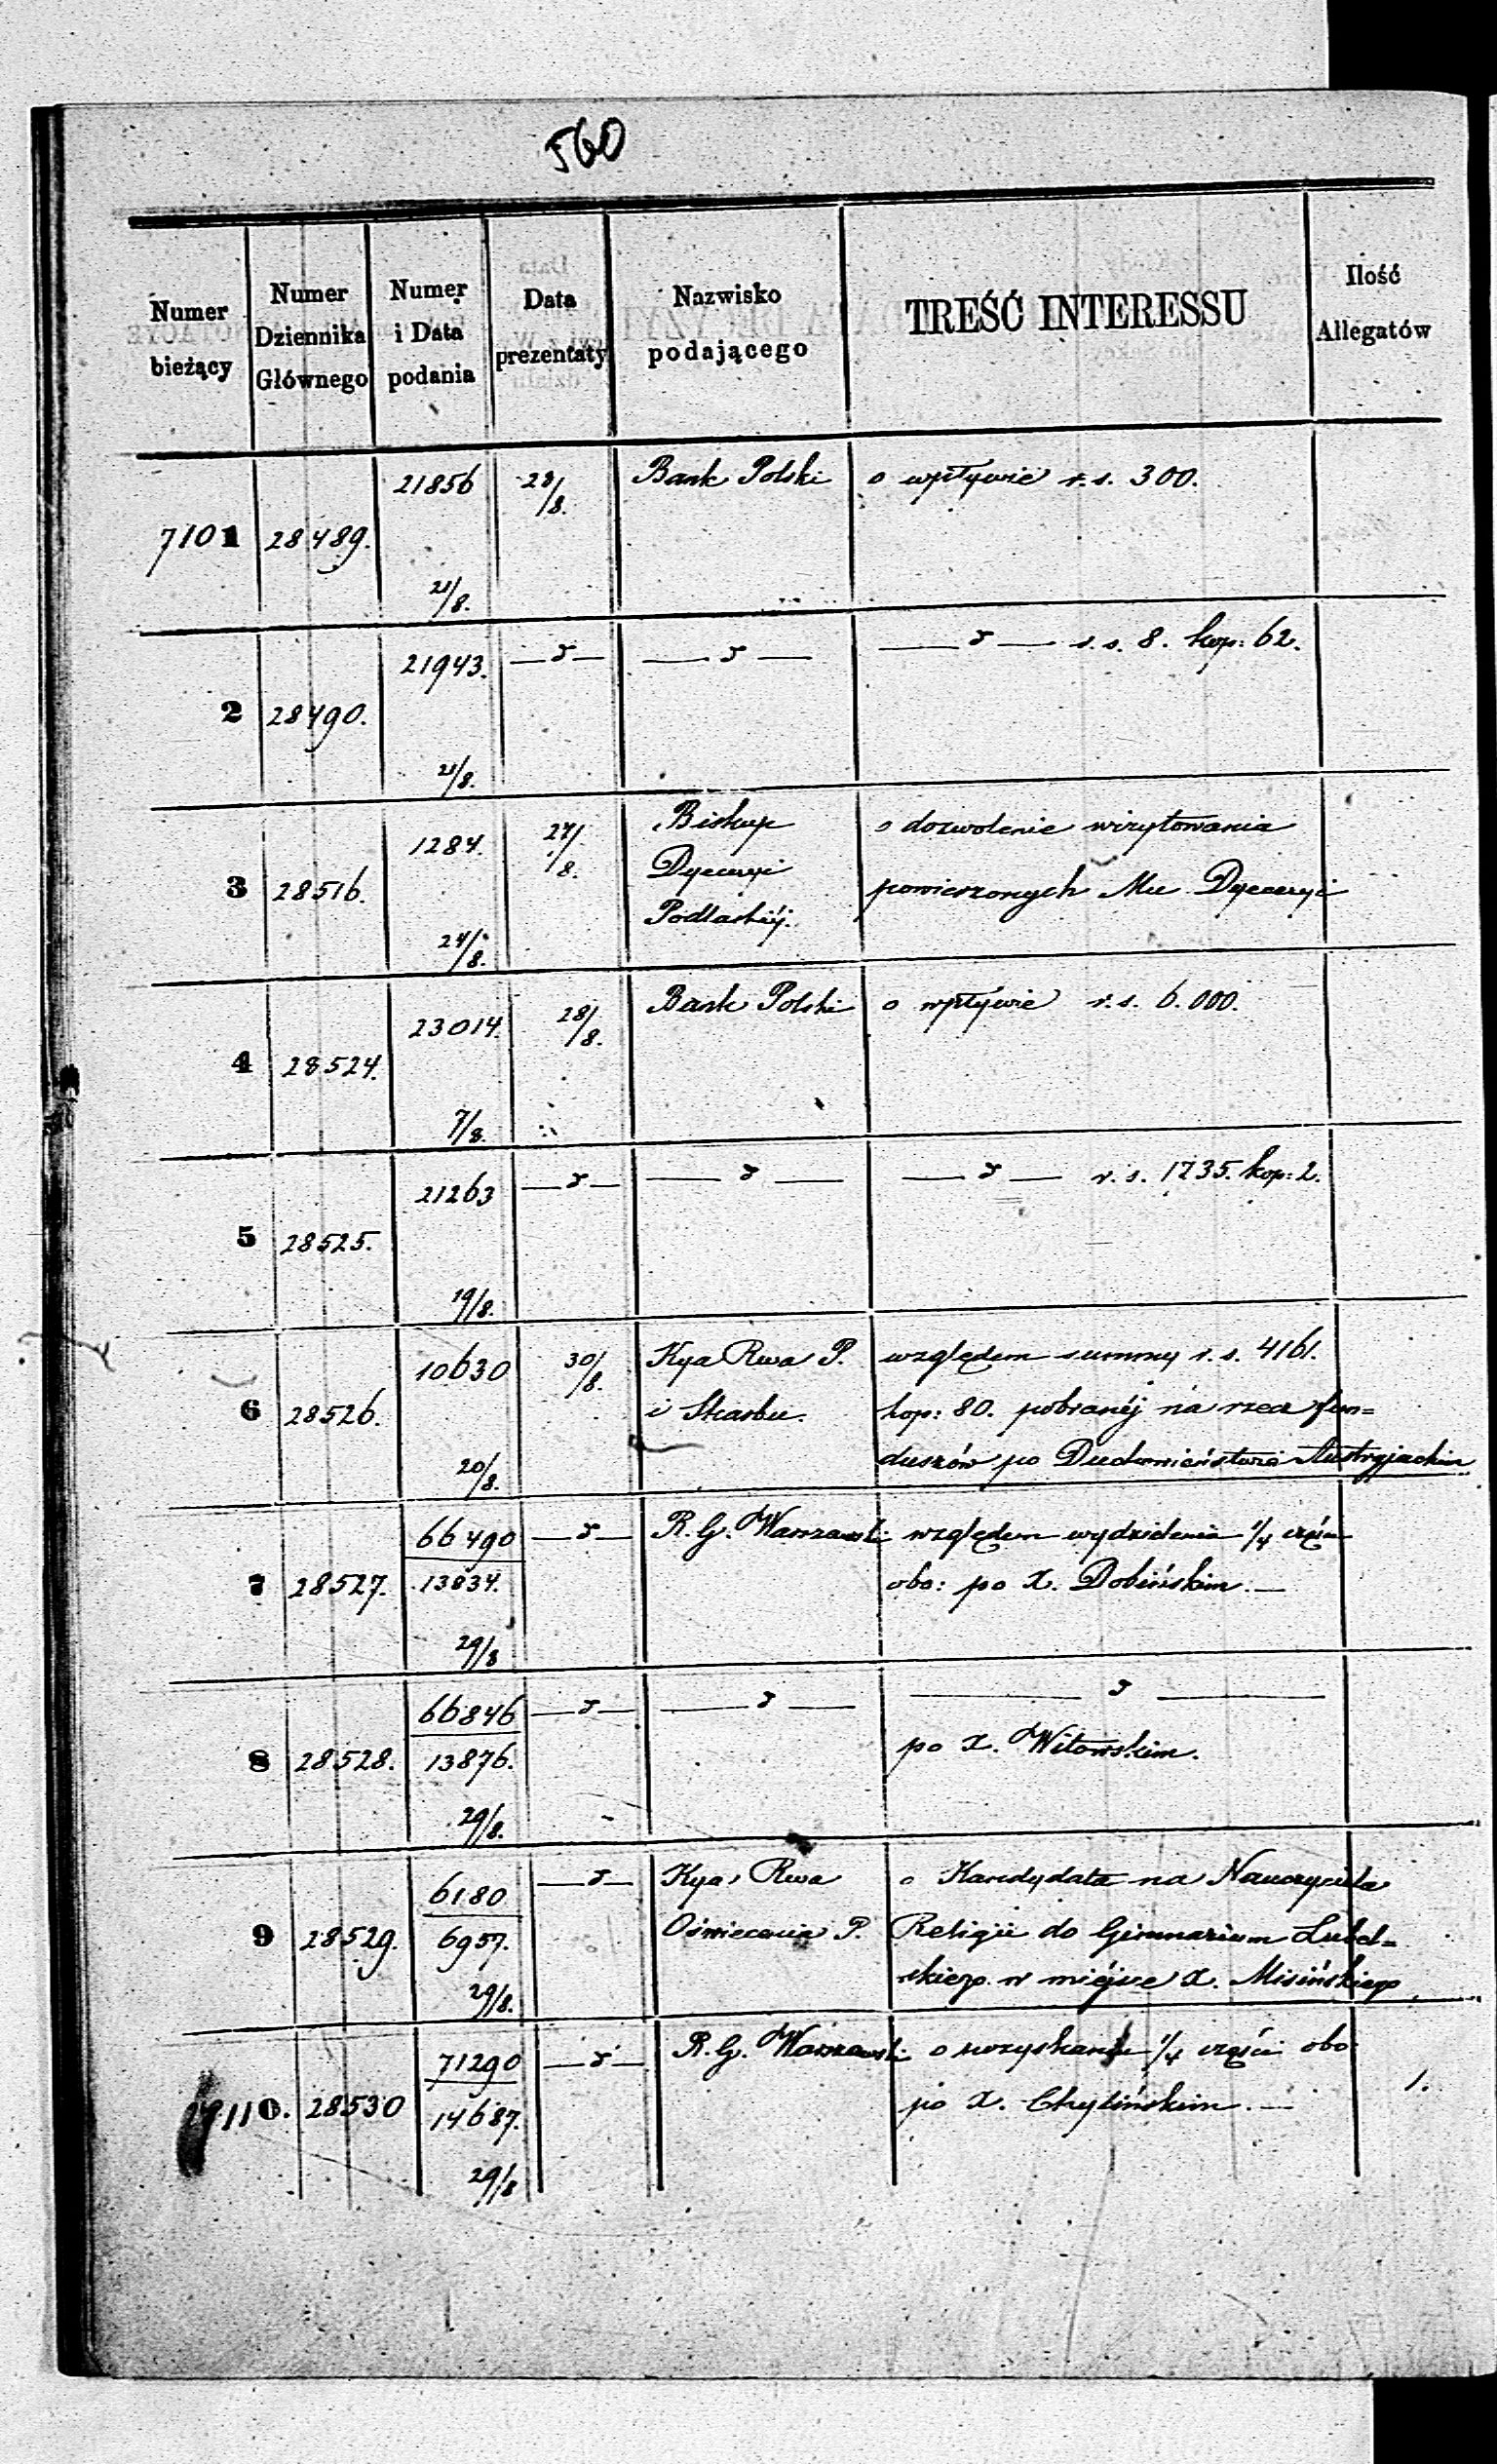 560
Numer bieżący
Numer Dziennika Głównego
Numer i Data podania
Data prezentaty
Nazwisko podającego
TREŚĆ INTERESSU
Ilość Allegatów
7101 28489. 21856 21/8. 28/8. Bank Polski o wpływie r. s. 300.
2 28490. 21943. 21/8. — d — — d — — d — r. s. 8. kop: 62.
3 28516. 1284. 24/8. 27/8. Biskup o dozwolenie wizytowania
Dyecezyi powierzonych Mu Dyecezyi
Podlaskiéj.
4 28524. 23014. 7/8. 28/8. Bank Polski o wpływie r. s. 6.000.
5 28525. 21263 19/8. — d — — d — — d — r. s. 1735. kop: 2.
6 28526. 10630 20/8. 30/8. Kya Rwa P. względem summy r. s. 4161.
i Skarbu. kop: 80. pobranéj na rzecz fun=
duszów po Duchowieństwie Austryjackim
7 28527. 66490 13834. 29/8 — d — R. G. Warszawski względem wydzielenia 1/4 części
obo: po X. Dobińskim. —
8 28528. 66846 13876. 29/8. — d — — d — — d —
po X. Witowskim.
9 28529. 6180 6957. 29/8. — d — Kya Rwa o Kandydata na Nauczyciela
Oświecenia P. Religii do Gimnazium Lubel=
skiego w miéjsce X. Misińskiego
7110. 28530 71290 14687. 29/8 — d — R. G. Warszawski o uzyskanie 1/4 części obo
po X. Chylińskim. — 1.